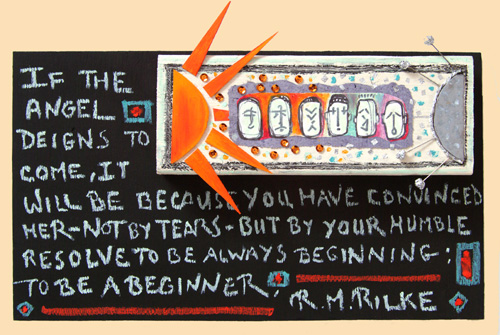 IF THE
ANGEL
DEIGNS TO
COME, IT
WILL BE BECAUSE YOU HAVE CONVINCED
HER-NOT BY TEARS-BUT BY YOUR HUMBLE
RESOLVE TO BE ALWAYS BEGINNING:
TO BE A BEGINNER.
R.M. RILKE